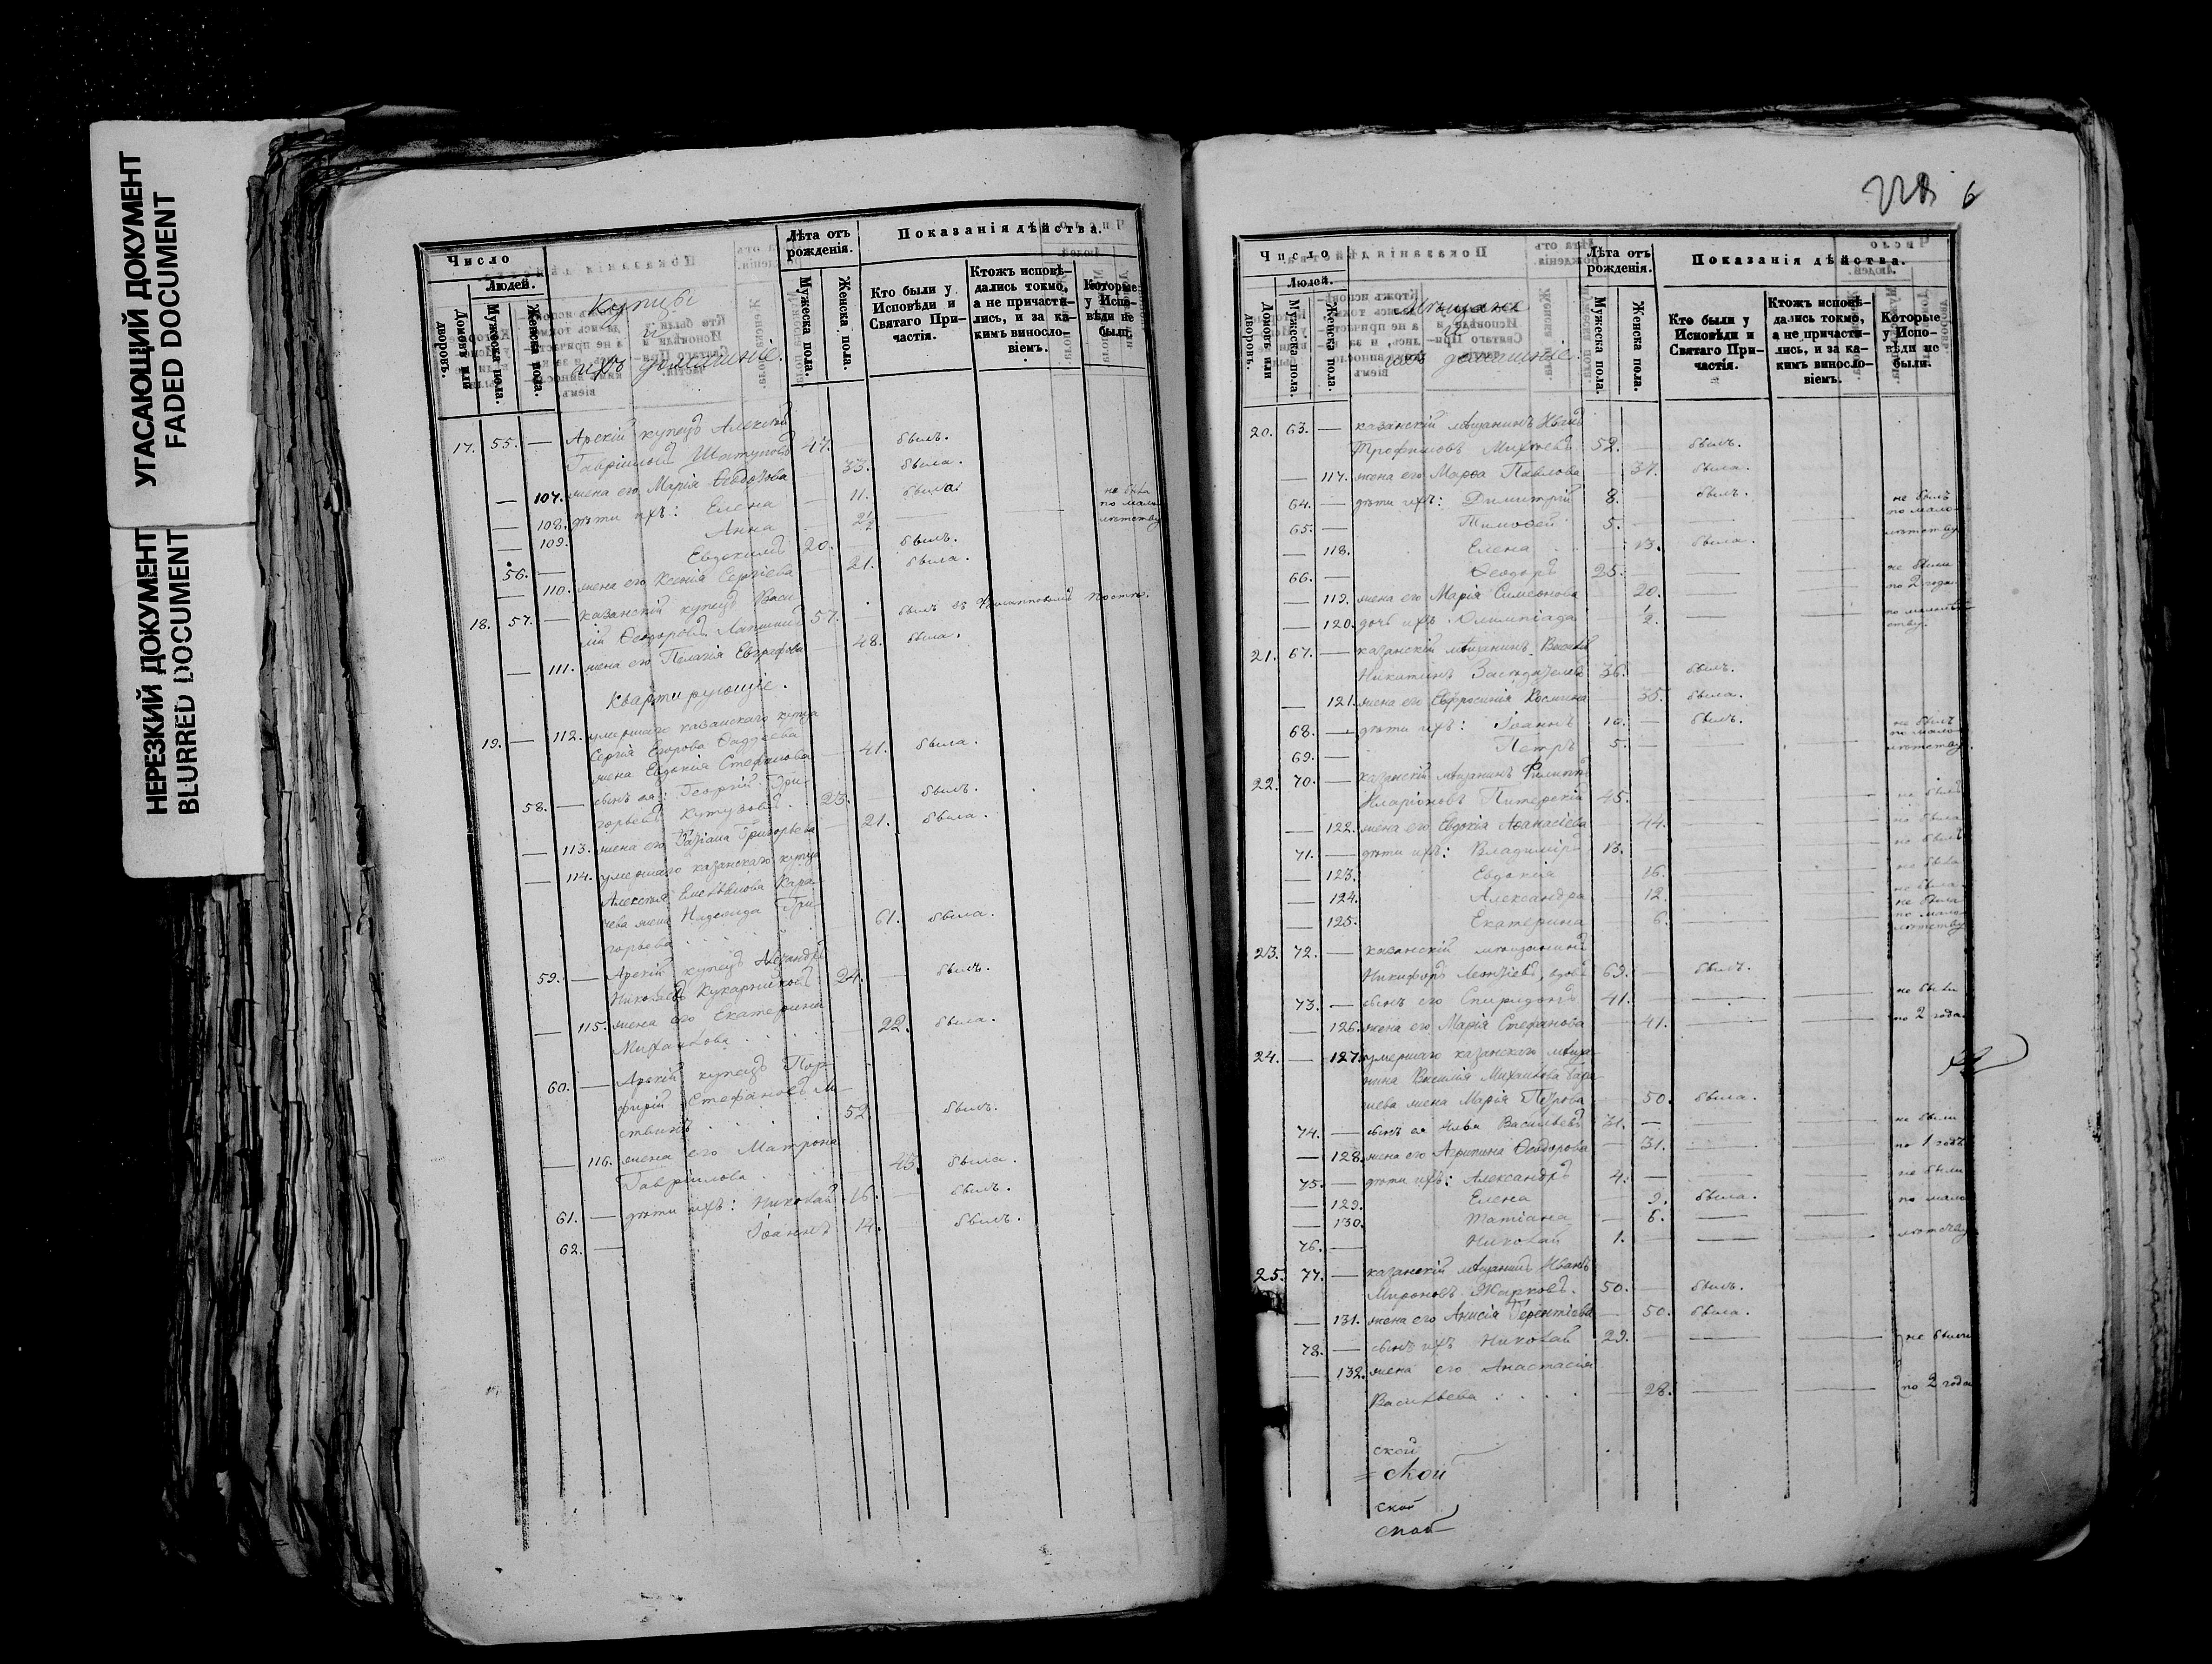 УГАСАЮЩИЙ ДОКУМЕНТ
FADED DOCUMENT
НЕРЕЗКИЙ ДОКУМЕНТ
BLURRED DOCUMENT
Число
Домовъ или дворовъ.
Людей.
Мужеска пола.
Женска пола.
Купцы
и
ихъ домашніе.
Лѣта отъ рожденія.
Мужеска пола.
Женска пола.
Показанія дѣйства.
Кто были у Исповѣди и Святаго Причастія.
Ктожъ исповѣдались токмо, а не причастились, и за какимъ винословіемъ.
Которые у Исповѣди не были.
17. 55. — Арскій купецъ Алексѣй
Гавріиловъ 47. былъ.
— 107. жена его Марія 33. была.
— 108. дѣти ихъ: Елена — 11. была
— 109. Анна 2½ — не была по малолѣтству
56. — Евдокимъ 20. — былъ.
— 110. жена его Ксенія Сергіева 21. была.
18. 57. — казанскій купецъ Васи-
лій Ѳеодоровъ Лапшинъ 57. — былъ въ Филипповъ постъ.
— 111. жена его Пелагія Евграфова — 48. была.
Квартирующіе.
19. — 112. умершаго казанскаго купца
Сергія Егорова Ѳаддеева
жена Евдокія Стефанова — 41. была.
58. — сынъ ея: Георгій Гри-
горьевъ 23. — былъ.
— 113. жена его Татіана Григорьева — 21. была.
— 114. умершаго казанскаго купца
Алексѣя Кара-
чева жена Надежда Гри-
горьева 61. была.
59. — Арскій купецъ Александръ
Николаевъ Кукарниковъ 24. — былъ.
— 115. жена его Екатерина
Михайлова 22. была.
60. — Арскій купецъ Пор-
фирій Стефановъ 52. былъ.
— 116. жена его Матрона
Гавріилова 45. была.
61. — дѣти ихъ: Николай 16. — былъ.
62. — Іоаннъ 14. — былъ.
6
Число
Домовъ или дворовъ.
Людей.
Мужеска пола.
Женска пола.
Мѣщане
и
ихъ домашніе.
Лѣта отъ рожденія.
Мужеска пола.
Женска пола.
Показанія дѣйства.
Кто были у Исповѣди и Святаго Причастія.
Ктожъ исповѣдались токмо, а не причастились, и за какимъ винословіемъ.
Которые у Исповѣди не были.
20. 63. — казанскій мѣщанинъ
Трофимовъ Михѣевъ 52. — былъ.
— 117. жена его Марѳа Павлова — 37. была.
64. — дѣти ихъ: Димитрій 8. — былъ.
65. — Тимоѳей 5. — не былъ по малолѣтству
— 118. Елена — 13. была.
66. — Ѳеодоръ 25. — не были
— 119. жена его Марія Симеонова — 20. — по 2 года
— 120. дочь ихъ Олимпіада — ½. — по малолѣтству.
21. 67. — казанскій мѣщанинъ Василій
Никитинъ 36. былъ.
— 121. жена его Евфросинія Космина — 35. была.
68. — дѣти ихъ: Іоаннъ 10. — былъ.
69. — Петръ 5. — не былъ по малолѣтству.
22. 70. — казанскій мѣщанинъ Филиппъ
Иларіоновъ Питерскій 45. — не былъ
— 122. жена его Евдокія Аѳанасіева — 44. — не была
71. — дѣти ихъ: Владиміръ 13. — не былъ
— 123. Евдокія 16. — не была
— 124. Александра 12. — не была
— 125. Екатерина 6. — не была по малолѣтству
23. 72. — казанскій мѣщанинъ
Никифоръ Леонтіевъ, вдовъ 69. — былъ.
73. — сынъ его Спиридонъ 41. — не были
— 126. жена его Марія Стефанова — 41. — по 2 года
24. — 127. умершаго казанскаго мѣща-
нина Василія Михайлова
жена Марія Петрова — 50. была.
74. — сынъ ея Илья Васильевъ 31. — не были
— 128. жена его Агрипина Ѳеодорова — 31. — по 1 году
75. — дѣти ихъ: Александръ 4. — не были
— 129. Елена — 9. была. по мало-
— 130. Татіана — 6. —
76. — Николай 1. — лѣтству
25. 77. — казанскій мѣщанинъ Иванъ
Мироновъ Жарковъ. 50. — былъ.
— 131. жена его Анисія Терентіева — 50. была.
78. — сынъ ихъ Николай 29. — не были
— 132. жена его Анастасія
Васильева — 28. — по 2 года
ской
ской
ской
ской